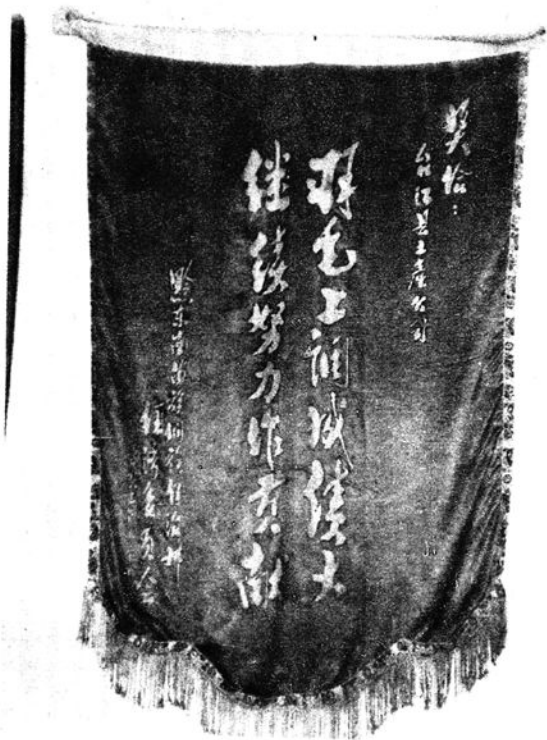 奖给：
台江县土产公司
羽毛上调成绩大
继续努力作贡献
黔东南苗族侗族自治州
经济委员会